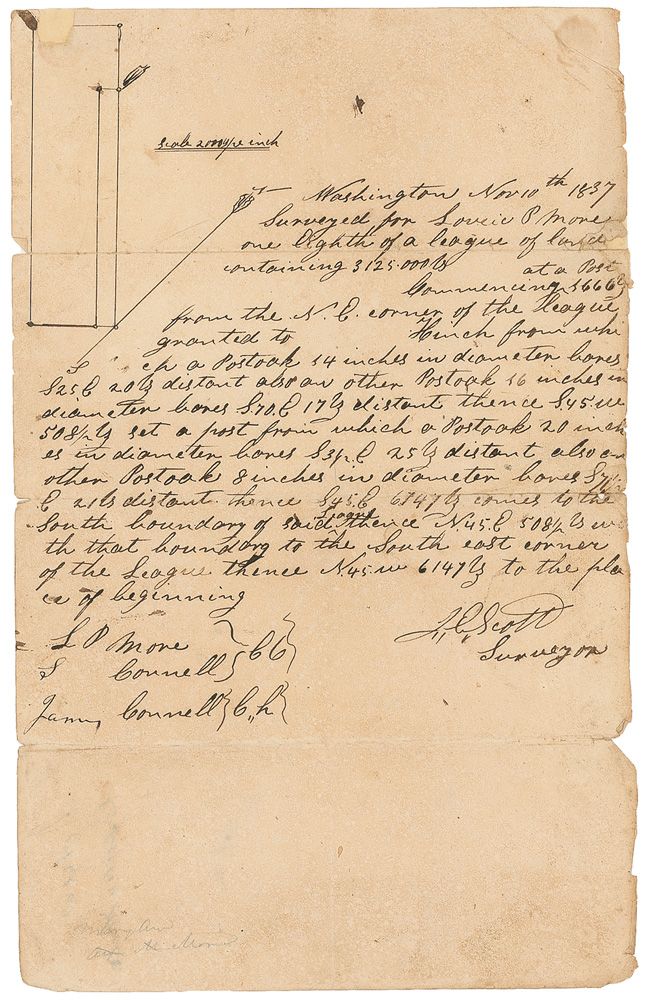 Scale 2000 vs inch
Washington Nov 10th 1837
Surveyed for Loveic P More
one Eighth of a league of land
containing 3125.000 vs at a Post
Commencing 1666 vs
from the N.E. corner of the league
granted to Hinch from whi
ch a Postoak 14 inches in diameter bares
S25E 20 vs distant also an other Postoak 16 inches in
diameter bares S.70.E 17 vs distant thence S45.W
508½ vs set a post from which a Postoak 20 inch
es in diameter bares S3½E 25 vs distant also an
other Postoak 8 inches in diameter bares
E 21 vs distant thence S45.E 6147 vs comes to the
South boundary of said League thence N.45.E 508½ vs wi
th that boundary to the South east corner
of the League thence N.45.W 6147 vs to the pla
ce of beginning
L P More
S Connell } C C
James Connell } C,,h
Scott
Surveyor
Mary Ann